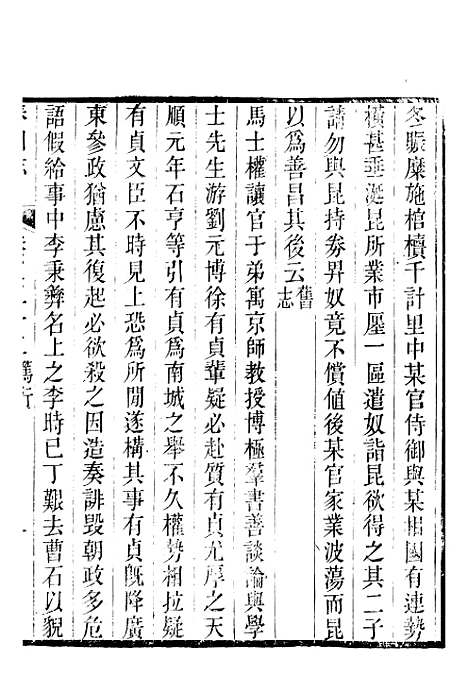 冬賑糜施棺櫝千計里中某官侍御與某相國有連勢
橫甚垂涎昆所業市廛一區遣奴詣昆欲得之其二子
請勿與昆持劵昇奴竟不償値後某官家業波蕩而昆
以爲善昌其後云舊志
馬士權讓官于弟寓京師教授博極羣書善談論與學
士先生游劉元博徐有貞輩疑必赴質有貞尤厚之天
順元年石亨等引有貞爲南城之舉不久權勢相拉疑
有貞文臣不時見上恐爲所閒遂構其事有貞旣降廣
東參政猶慮其復起必欲殺之因造奏誹毀朝政多危
語假給事中李秉彝名上之李時已丁艱去曹石以貌
篤行